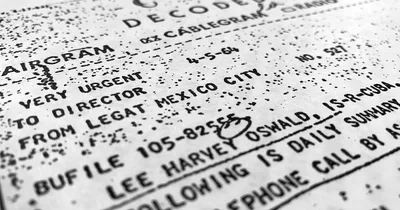 DECODED
AIRGRAM CABLEGRAM RADIO
4-5-64 NO. 527
VERY URGENT
TO DIRECTOR
FROM LEGAT MEXICO CITY
BUFILE 105-82555
LEE HARVEY OSWALD, IS-R-CUBA
FOLLOWING IS DAILY SUMMARY
TELEPHONE CALL BY